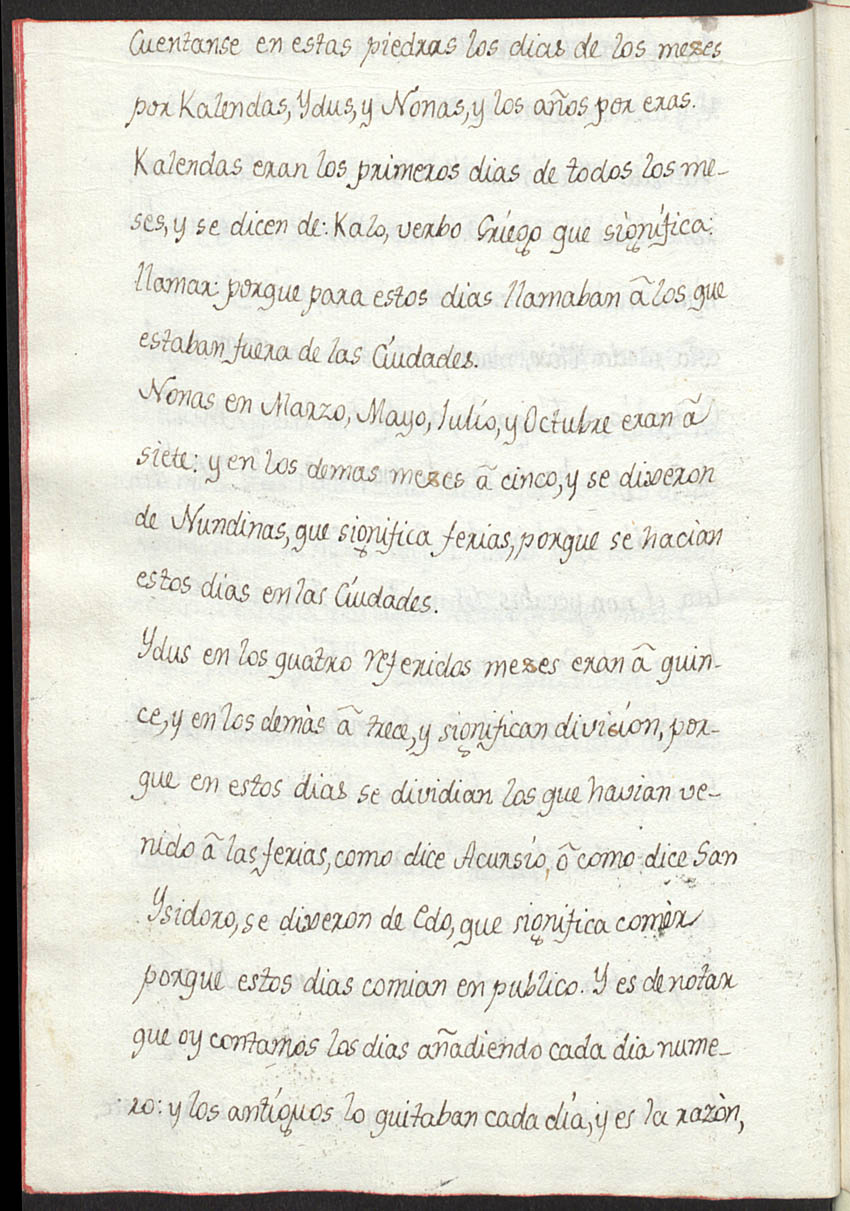 Cuentanse en estas piedras los dias de los mezes
por Kalendas, Ydus, y Nonas, y los años por eras.
Kalendas eran los primeros dias de todos los me-
ses, y se dicen de: Kalo, verbo Griego que significa:
llamar: porque para estos dias llamaban â los que
estaban fuera de las Ciudades.
Nonas en Marzo, Mayo, Iulio, y Octubre eran â
siete: y en los demas mezes â cinco, y se dixeron
de Nundinas, que significa ferias, porque se hacian
estos dias en las Ciudades.
Ydus en los quatro referidos mezes eran â quin-
ce, y en los demàs â trece, y significan división, por-
que en estos dias se dividian los que havian ve-
nido â las ferias, como dice Acursio, ô como dice San
Ysidoro, se dixeron de Edo, que significa comèr
porque estos dias comian en publico. Y es de notar
que oy contamos los dias añadiendo cada dia nume-
ro: y los antiguos lo quitaban cada día, y es la razòn,